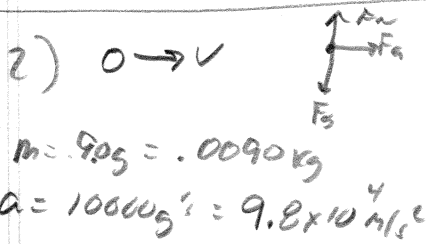 2) O → V
Fn
Fa
Fg
m = 9.0g = .0090 kg
a = 10000g's = 9.8×10⁴ m/s²